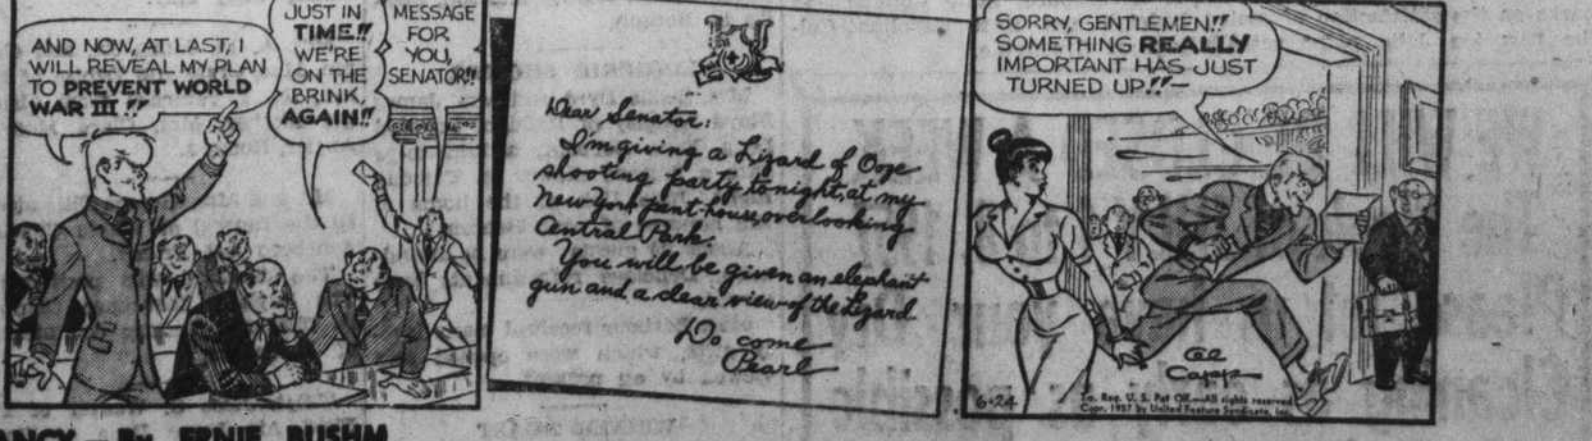 AND NOW, AT LAST, I
WILL REVEAL MY PLAN
TO PREVENT WORLD
WAR III!!
JUST IN
TIME!!
WE'RE
ON THE
BRINK,
AGAIN!!
MESSAGE
FOR
YOU,
SENATOR!!
Dear Senator:
I'm giving a Lizard of Ooze
shooting party tonight, at my
New York pent-house, overlooking
Central Park.
You will be given an elephant
gun and a clear view of the Lizard
Do come
Pearl
SORRY, GENTLEMEN!!
SOMETHING REALLY
IMPORTANT HAS JUST
TURNED UP!!—
Al
Capp
6-24
Reg. U. S. Pat Off.—All rights reserved
Copr. 1957 by United Feature Syndicate, Inc.
By ERNIE BUSHM